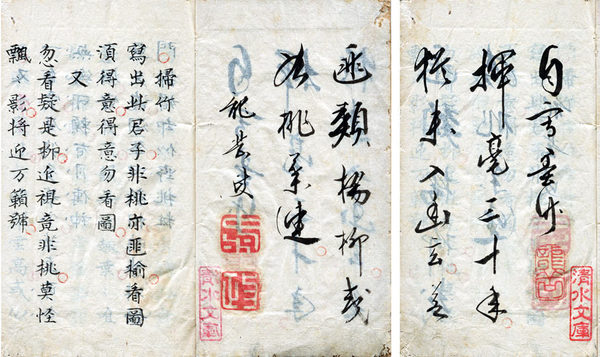 自寫墨竹
揮毫三十年
猶未入幽玄
匪類楊柳或
桃葉連
清水文庫
清水文庫
掃竹
寫出此君子非桃亦匪楡看圖
須得意得意勿看圖
又
忽看疑是柳近視竟非桃莫怪
飄々影将近万籟號